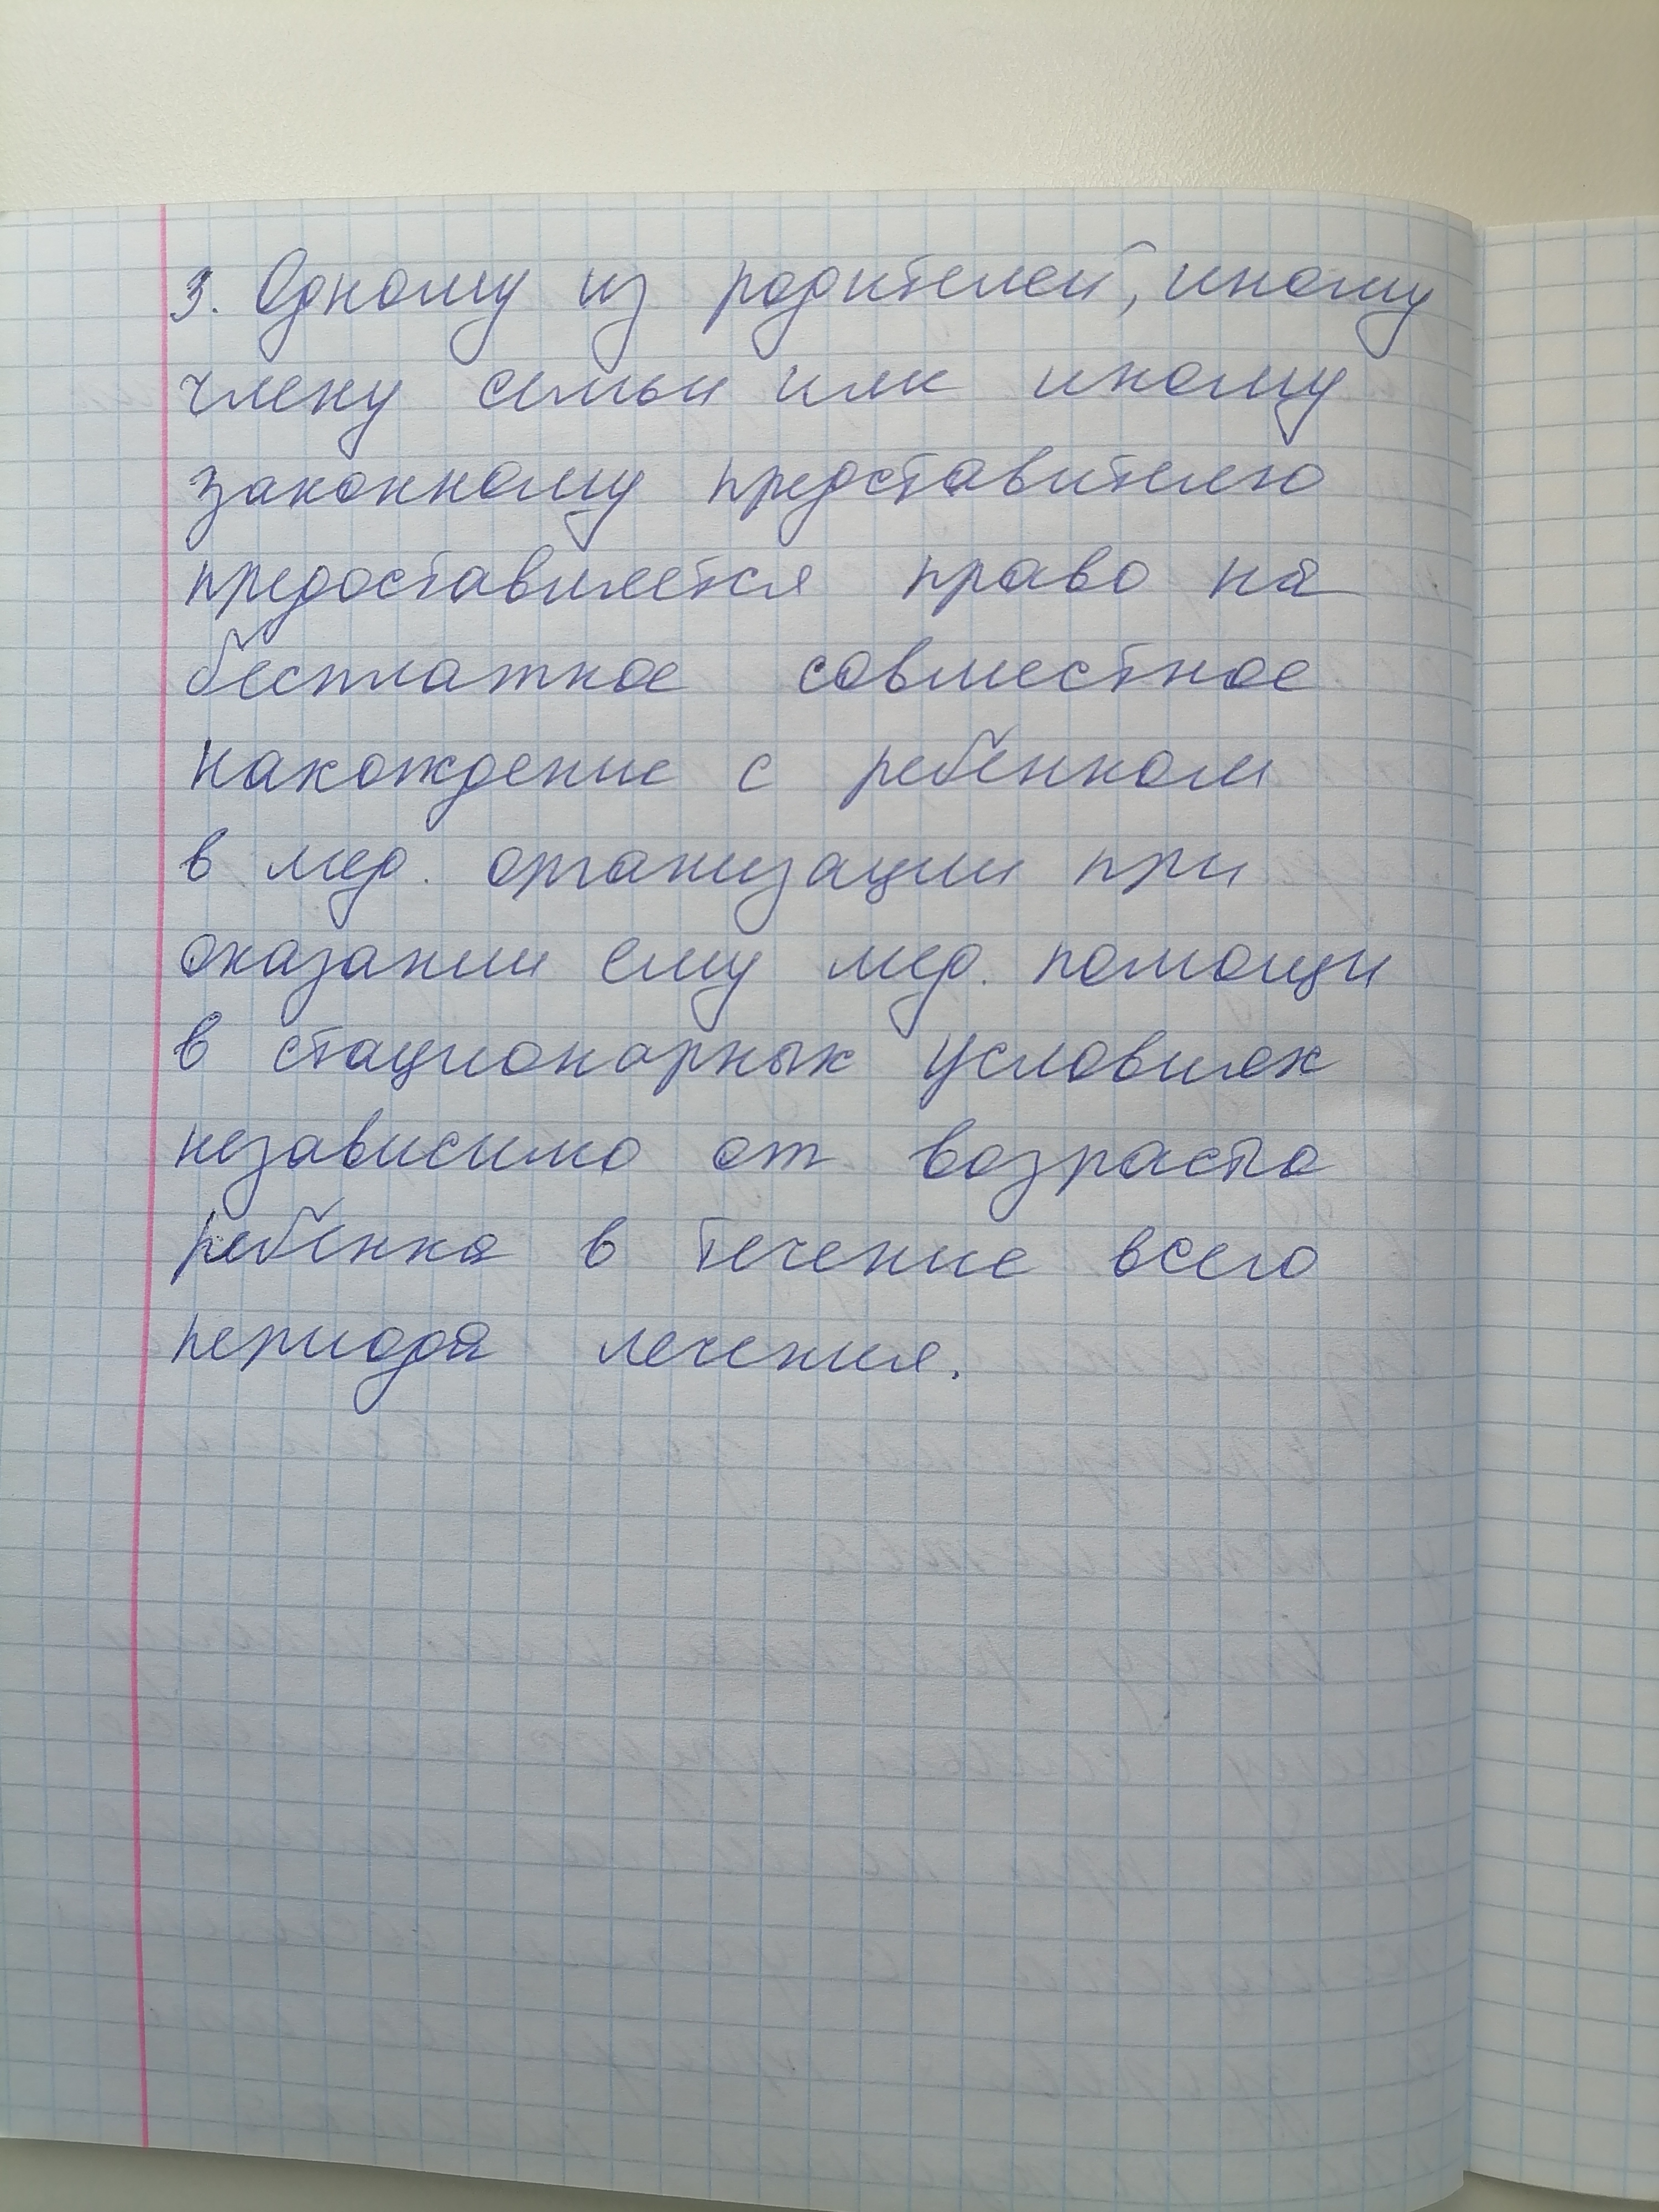 3. Одному из родителей, иному
члену семьи или иному
законному представителю
предоставляется право на
бесплатное совместное
нахождение с ребёнком
в мед. организации при
оказании ему мед. помощи
в стационарных условиях
независимо от возраста
ребёнка в течение всего
периода лечения.